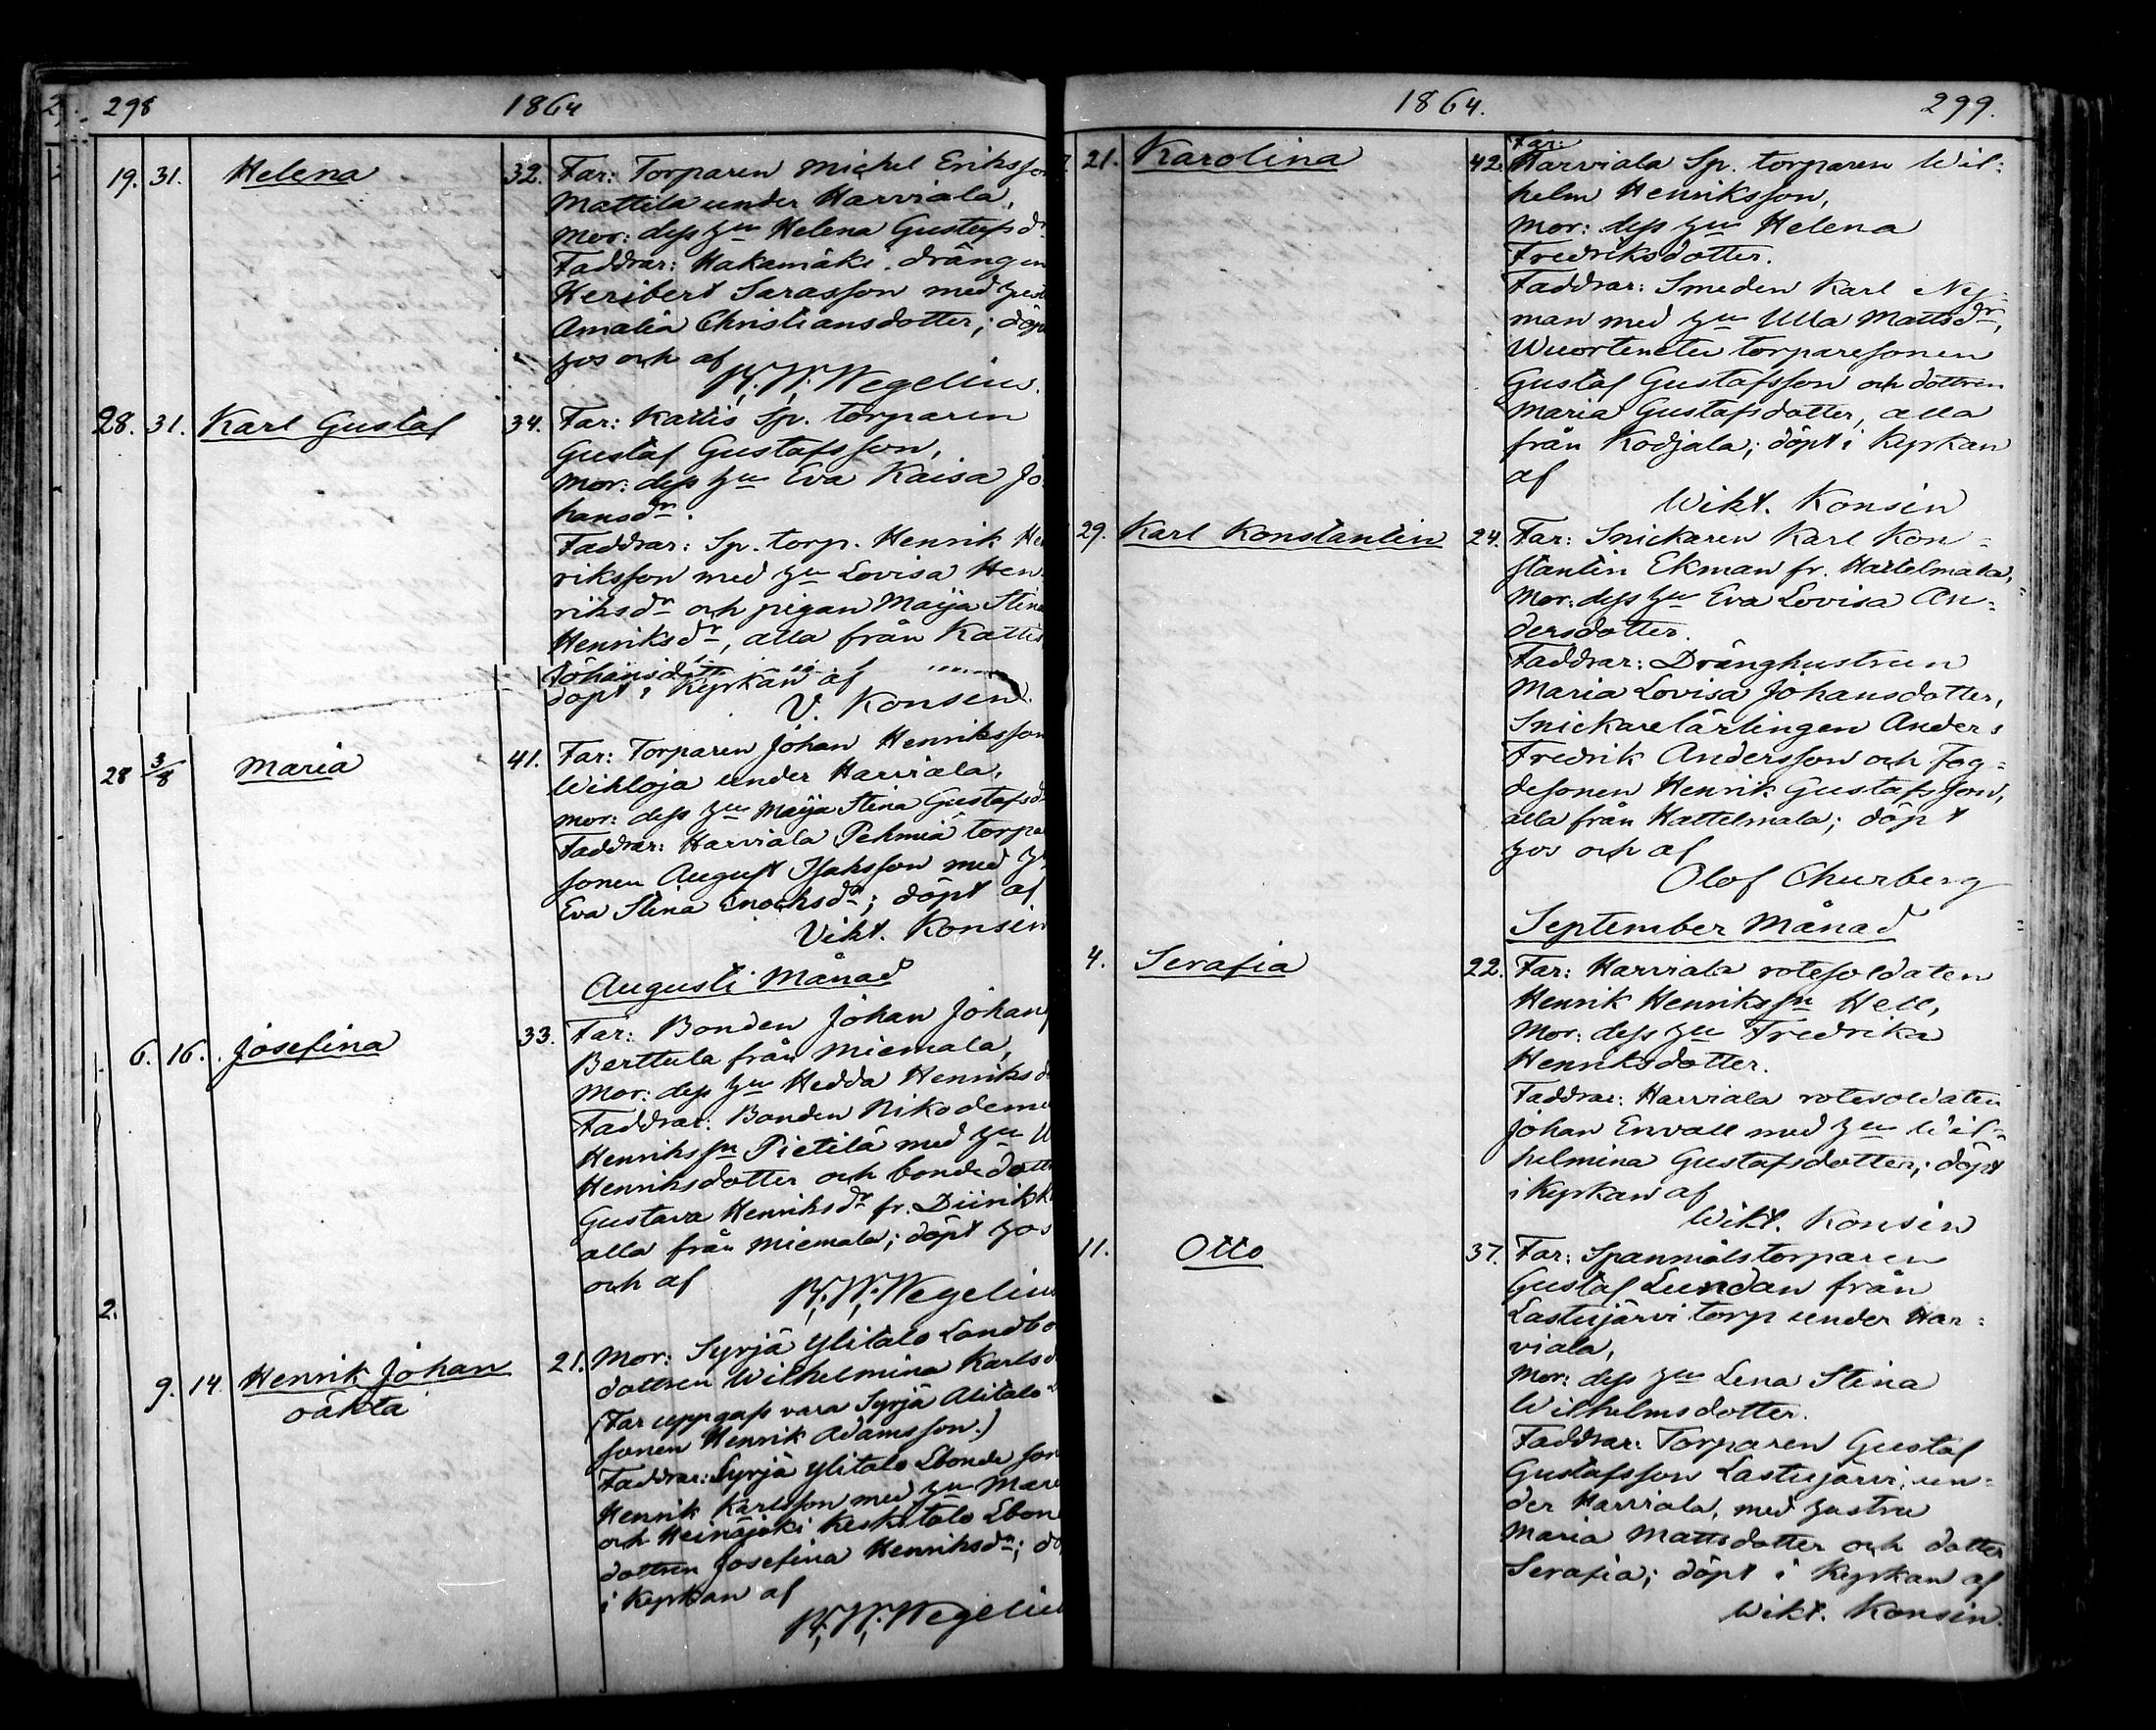 298 1864
19. 31. Helena 32. Far: Torparen Michel Eriksson
Mattila under Harviala,
Mor: dess hu Helena Gustafsdr
Faddrar: Hakamäki drängen
Heribert Sarasson med hust
Amalia Christiansdotter; döpt
hos och af
K. W. Wegelius.
28. 31. Karl Gustaf 34. Far: Kattis Sp. torparen
Gustaf Gustafsson,
Mor: dess hu Eva Kaisa Jo
hansdr.
Faddrar: Sp. torp. Henrik Hen
riksson med hu Lovisa Hen
riksdr och pigan Maija Stina
Henriksdr, alla från Kattis
döpt i Kyrkan af
V. Konsin.
28 3/8 Maria 41. Far: Torparen Johan Henriksson
Wikloja under Harviala,
Mor: dess hu Maija Stina Gustafsd
Faddrar: Harviala Pehmiä torpa
sonen August Isaksson med hu
Eva Stina Enochsdr; döpt af
Vikt. Konsin
Augusti Månad
6. 16. Josefina 33. Far: Bonden Johan Johans
Berttula från Miemala,
Mor: dess hu Hedda Henriksd
Faddrar: Bonden Nikodemu
Henrikssn Pietilä med hu U
Henriksdotter och bondedott
Gustava Henriksdr fr. Diirikk
alla från Miemala; döpt hos
och af
K. W. Wegelius
2.
9. 14. Henrik Johan 21. Mor: Syrjä Ylitalo Landbo
oäkta
dottren Wilhelmina Karlsd
(Far uppgafs vara Syrjä Alitalo
sonen Henrik Adamsson.)
Faddrar: Syrjä Ylitalo Lbonde son
Henrik Karlsson med hu Mar
och Heinäjoki Keskitalo Lbon
dottren Josefina Henriksdr; dö
i Kyrkan af
K. W. Wegeliu
1864. 299.
21. Karolina 42. Far:
Harviala Sp. torparen Wil:
helm Henriksson,
Mor: dess hu Helena
Fredriksdotter.
Faddrar: Smeden Karl Ny=
man med hu Ulla Mattsdr,
Wuorteneten torparesonen
Gustaf Gustafsson och dottren
Maria Gustafsdotter, alla
från Kodjala; döpt i Kyrkan
af
Wikt. Konsin
29. Karl Konstantin 24. Far: Snickaren Karl Kon=
stantin Ekman fr. Hattelmala,
Mor: dess hu Eva Lovisa An=
dersdotter.
Faddrar: Dränghustrun
Maria Lovisa Johansdotter,
Snickarelärlingen Anders
Fredrik Andersson och fog=
desonen Henrik Gustafsson,
alla från Hattelmala; döpt
hos och af
Olof Churberg
September Månad
4. Serafia 22. Far: Harviala rotesoldaten
Henrik Henrikssn Hell,
Mor: dess hu Fredrika
Henriksdotter.
Faddrar: Harviala rotesoldaten
Johan Envall med hu Wil=
helmina Gustafsdotter; döpt
i Kyrkan af
Wikt. Konsin
11. Otto 37. Far: Spannmålstorparen
Gustaf Lundan från
Lastujärvi torp under Har:
viala,
Mor: dess hu Lena Stina
Wilhelmsdotter.
Faddrar: Torparen Gustaf
Gustafsson Lastujärvi, un=
der Harviala, med hustru
Maria Mattsdotter och dotter
Serafia; döpt i Kyrkan af
Wikt. Konsin.